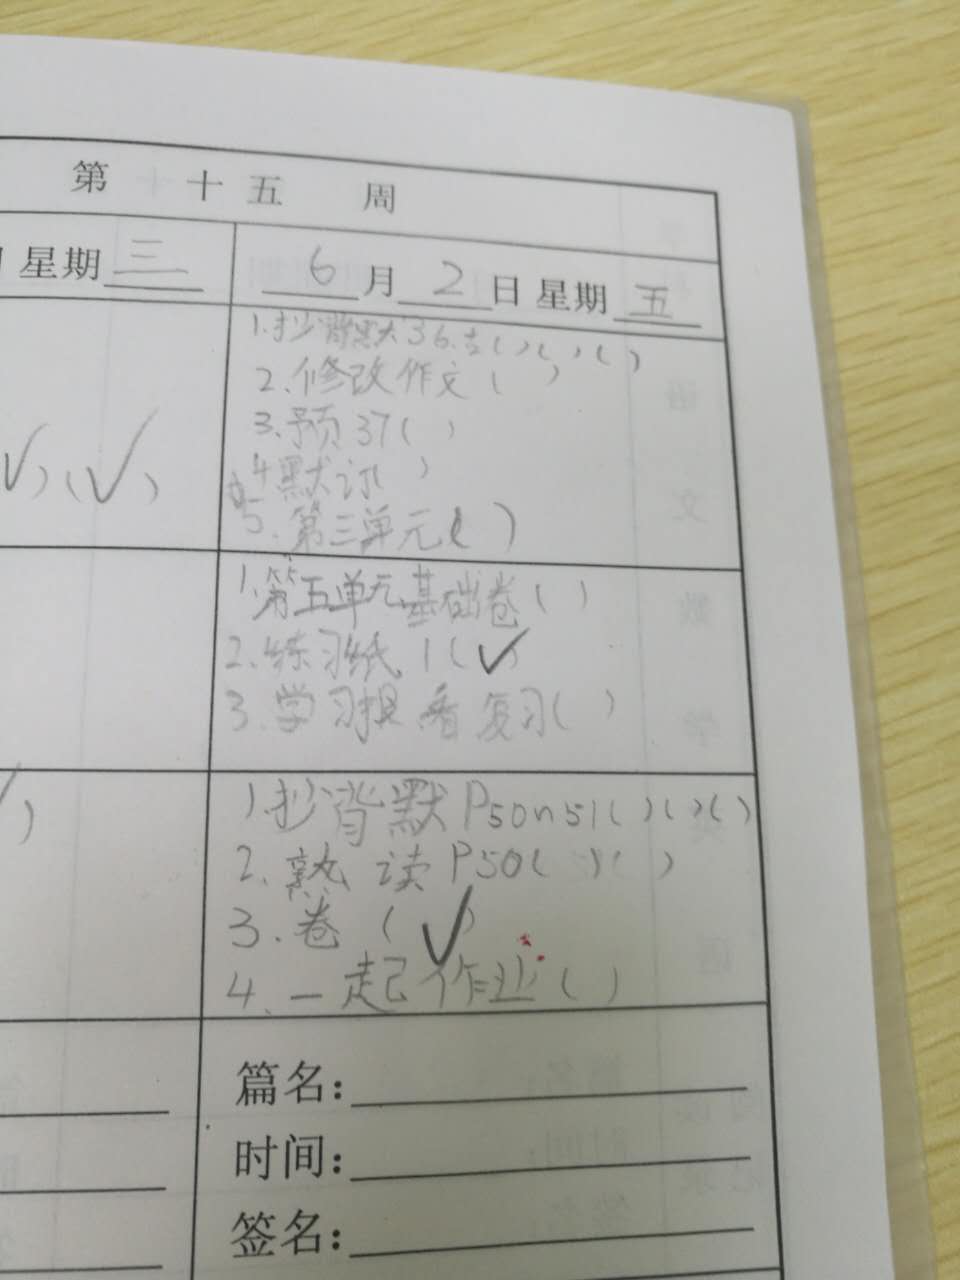 第 十五 周
星期三
6月2日 星期五
1.抄背默36.古( )( )( )
2.修改作文( )
3.预37( )
4默订( )
5.第三单元( )
(√)(√)
1.第五单元基础卷( )
2.练习纸1(√)
3.学习提看复习( )
1.抄背默P50n51( )( )( )
2.熟读P50( )( )
3.卷(√)
4.一起作业( )
篇名：
时间：
签名：